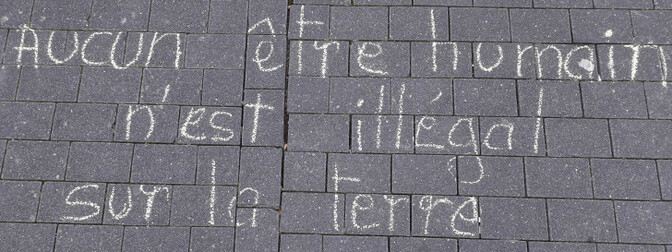 Aucun être humain
n'est illégal
sur la terre